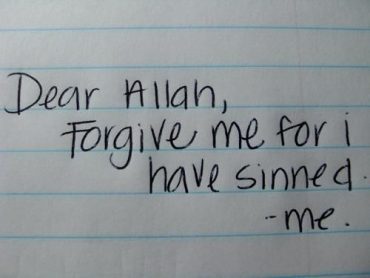 Dear Allah,
Forgive me for i
have sinned.
-me.